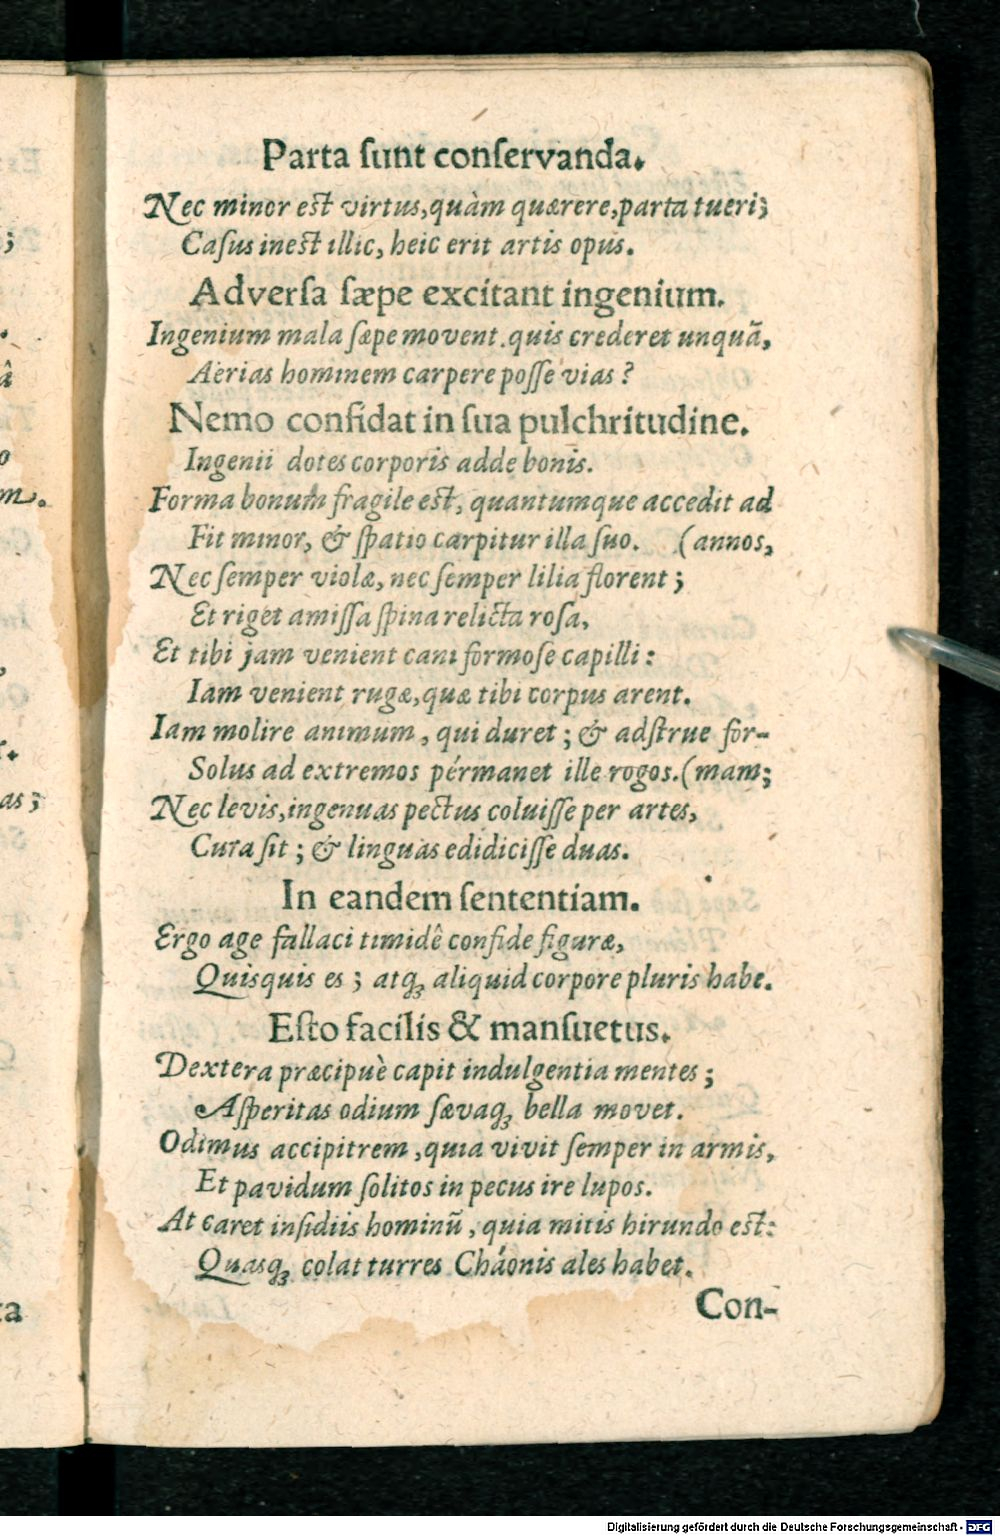 Parta ſunt conſervanda.
Nec minor eſt virtus, quàm quærere, parta tueri;
Caſus ineſt illic, heic erit artis opus.
Adverſa ſæpe excitant ingenium.
Ingenium mala ſæpe movent. quis crederet unquã,
Aërias hominem carpere poſſe vias?
Nemo confidat in ſua pulchritudine.
Ingenii dotes corporis adde bonis.
Forma bonum fragile eſt, quantumque accedit ad
Fit minor, & ſpatio carpitur illa ſuo. (annos,
Nec ſemper violæ, nec ſemper lilia florent;
Et riget amiſſa ſpina relicta roſa,
Et tibi jam venient cani formoſe capilli:
Iam venient rugæ, quæ tibi corpus arent.
Iam molire animum, qui duret; & adſtrue for-
Solus ad extremos permanet ille rogos. (mam;
Nec levis, ingenuas pectus coluiſſe per artes,
Cura ſit; & linguas edidiciſſe duas.
In eandem ſententiam.
Ergo age fallaci timidê confide figuræ,
Quisquis es; atqꝫ aliquid corpore pluris habe.
Eſto facilis & manſuetus.
Dextera præcipuè capit indulgentia mentes;
Aſperitas odium ſævaqꝫ bella movet.
Odimus accipitrem, quia vivit ſemper in armis,
Et pavidum ſolitos in pecus ire lupos.
At caret inſidiis hominũ, quia mitis hirundo eſt:
Quasqꝫ colat turres Cháonis ales habet.
Con-
Digitalisierung gefördert durch die Deutsche Forschungsgemeinschaft - DFG